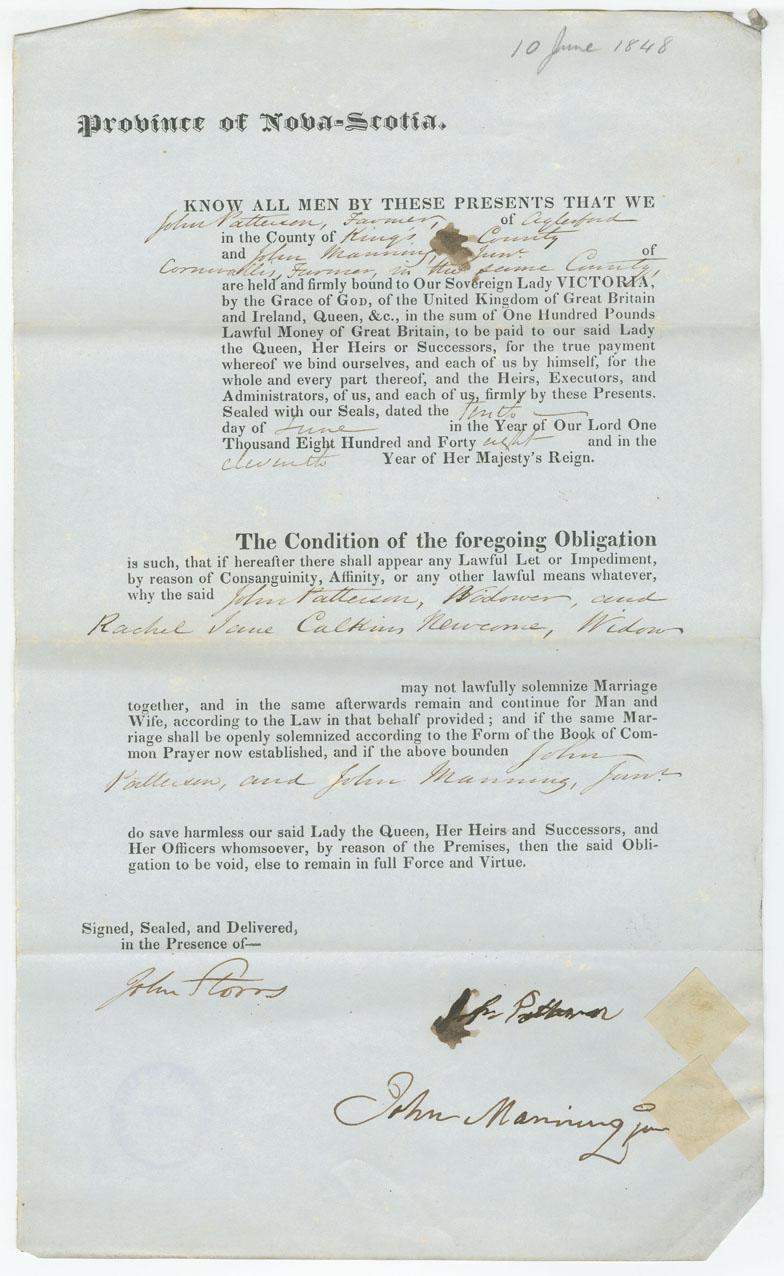 10 June 1848
Province of Nova-Scotia.
KNOW ALL MEN BY THESE PRESENTS THAT WE
John Patterson, Farmer, of Aylesford
in the County of King's County
and John Manning, Junr. of
Cornwallis, Farmer, in the same County,
are held and firmly bound to Our Sovereign Lady VICTORIA,
by the Grace of GOD, of the United Kingdom of Great Britain
and Ireland, Queen, &c., in the sum of One Hundred Pounds
Lawful Money of Great Britain, to be paid to our said Lady
the Queen, Her Heirs or Successors, for the true payment
whereof we bind ourselves, and each of us by himself, for the
whole and every part thereof, and the Heirs, Executors, and
Administrators, of us, and each of us, firmly by these Presents.
Sealed with our Seals, dated the Tenth
day of June in the Year of Our Lord One
Thousand Eight Hundred and Forty eight and in the
eleventh Year of Her Majesty's Reign.
The Condition of the foregoing Obligation
is such, that if hereafter there shall appear any Lawful Let or Impediment,
by reason of Consanguinity, Affinity, or any other lawful means whatever,
why the said John Patterson, Widower, and
Rachel Jane Calkins Newcome, Widow
may not lawfully solemnize Marriage
together, and in the same afterwards remain and continue for Man and
Wife, according to the Law in that behalf provided; and if the same Mar-
riage shall be openly solemnized according to the Form of the Book of Com-
mon Prayer now established, and if the above bounden John
Patterson, and John Manning, Junr.
do save harmless our said Lady the Queen, Her Heirs and Successors, and
Her Officers whomsoever, by reason of the Premises, then the said Obli-
gation to be void, else to remain in full Force and Virtue.
Signed, Sealed, and Delivered,
in the Presence of—
John Storrs
John Patterson
John Manning Jun